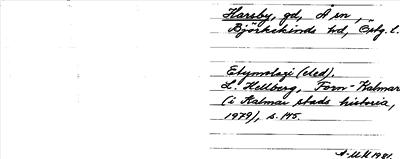 Harsby, gd, Å sn,
Björkekinds hd, Östg. l.
Etymologi (eled).
L. Hellberg, Forn-Kalmar
(i Kalmar stads historia,
1979), s. 145.
A-MM 1981.